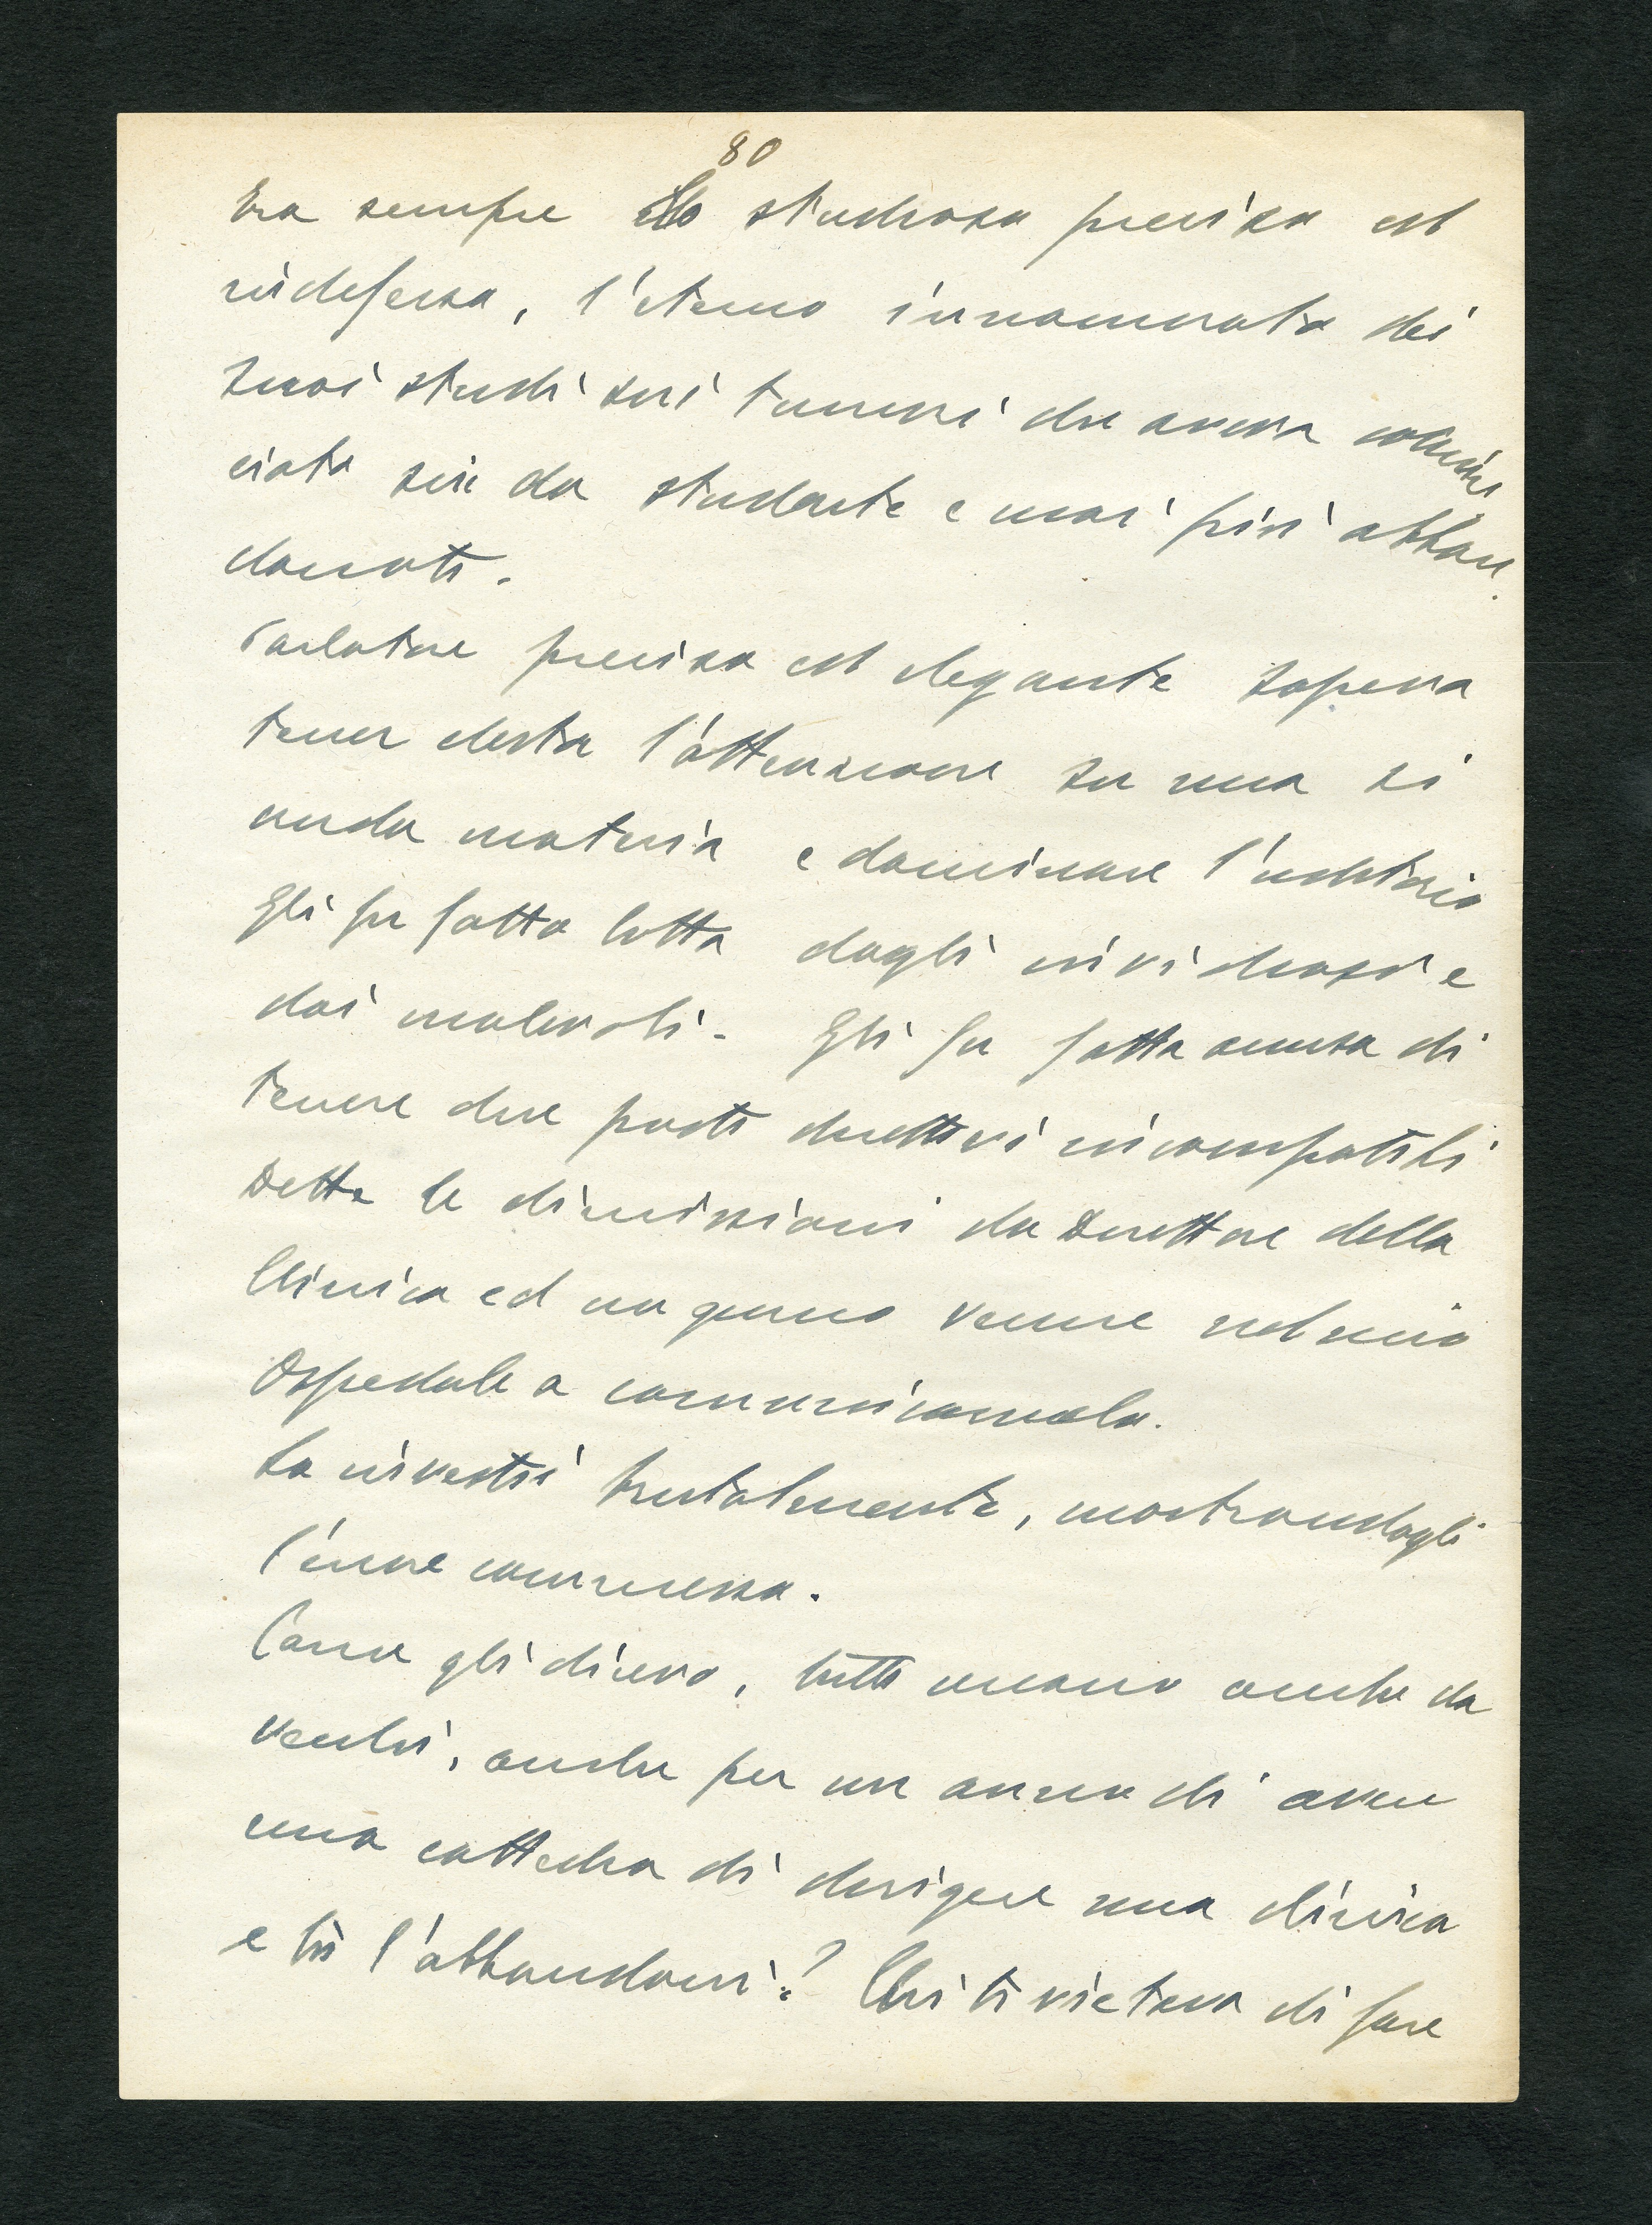 80
Era sempre lo studioso preciso ed
indefesso, l'eterno innamorato dei
suoi studi sui tumori che aveva comin
ciato sin da studente e mai più abban
donati.
Parlatore preciso ed elegante sapeva
tener desta l'attenzione su una sì
arida materia e dominare l'uditorio
Gli fu fatta lotta dagli invidiosi e
dai malevoli. Gli fu fatta accusa di
tenere due posti direttivi incompatibili
Dette le dimissioni da Direttore della
Clinica ed un giorno venne nel mio
Ospedale a comunicarmelo.
Lo investii brutalmente, mostrandogli
l'errore commesso.
Come gli dicevo, tutti amano anche da
vecchi, anche per un anno di avere
una cattedra di dirigere una clinica
e tu l'abbandoni? Chi ti vietava di fare